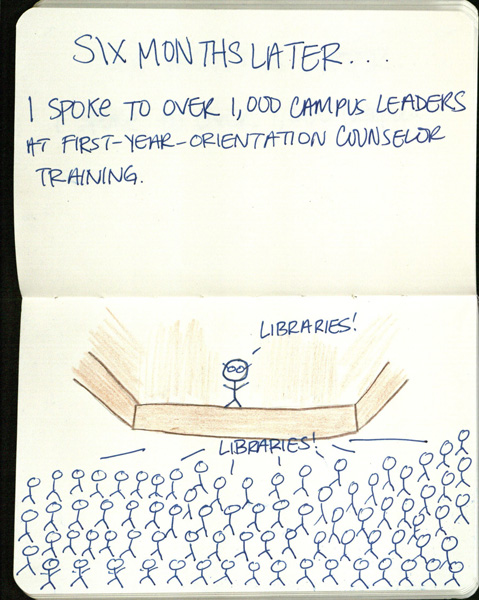 SIX MONTHS LATER...
I SPOKE TO OVER 1,000 CAMPUS LEADERS
AT FIRST-YEAR-ORIENTATION COUNSELOR
TRAINING.
LIBRARIES!
LIBRARIES!